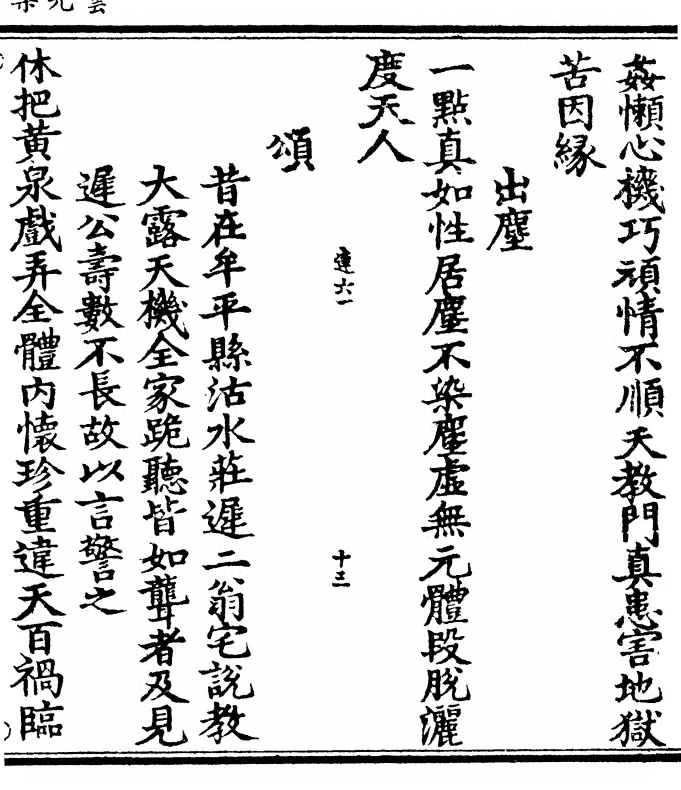 姦懶心機巧頑情不順天教門真患害地獄
苦因緣
出塵
一點真如性居塵不染塵虛無元體段脫灑
度天人
連六一
十三
頌
昔在牟平縣沽水莊遲二翁宅說教
大露天機全家跪聽皆如聾者及見
遲公壽數不長故以言警之
休把黃泉戲弄全體內懷珍重違天百禍臨